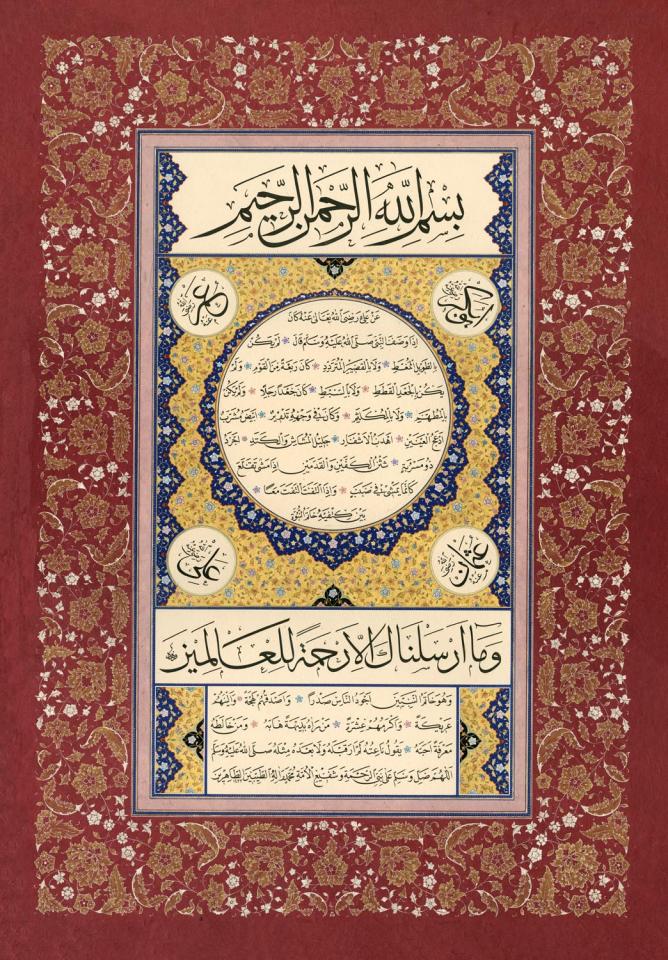 بِسْمِ اللهِ الرَّحْمٰنِ الرَّحِيمِ
ابو بكر رضى الله عنه
عمر رضى الله عنه
عَنْ عَلِىٍّ رَضِىَ اللهُ تَعَالٰى عَنْهُ كَانَ
اِذَا وَصَفَ النَّبِىَّ صَلَّى اللهُ عَلَيْهِ وَسَلَّمَ قَالَ لَمْ يَكُنْ
بِالطَّوِيلِ الْمُمَّغِطِ وَلَا بِالْقَصِيرِ الْمُتَرَدِّدِ كَانَ رَبْعَةً مِنَ الْقَوْمِ وَلَمْ
يَكُنْ بِالْجَعْدِ الْقَطَطِ وَلَا بِالسَّبَطِ كَانَ جَعْدًا رَجِلًا وَلَمْ يَكُنْ
بِالْمُطَهَّمِ وَلَا بِالْمُكَلْثَمِ وَكَانَ فِى وَجْهِهِ تَدْوِيرٌ اَبْيَضُ مُشْرَبٌ
اَدْعَجُ الْعَيْنَيْنِ اَهْدَبُ الْاَشْفَارِ جَلِيلُ الْمُشَاشِ وَالْكَتَدِ اَجْرَدُ
ذُو مَسْرُبَةٍ شَثْنُ الْكَفَّيْنِ وَالْقَدَمَيْنِ اِذَا مَشٰى تَقَلَّعَ
كَاَنَّمَا يَمْشِى فِى صَبَبٍ وَاِذَا الْتَفَتَ الْتَفَتَ مَعًا
بَيْنَ كَتِفَيْهِ خَاتَمُ النُّبُوَّةِ
عثمان رضى الله عنه
على رضى الله عنه
وَمَا اَرْسَلْنَاكَ اِلَّا رَحْمَةً لِلْعَالَمِينَ
وَهُوَ خَاتَمُ النَّبِيِّينَ اَجْوَدُ النَّاسِ صَدْرًا وَاَصْدَقُهُمْ لَهْجَةً وَاَلْيَنُهُمْ
عَرِيكَةً وَاَكْرَمُهُمْ عِشْرَةً مَنْ رَاٰهُ بَدِيهَةً هَابَهُ وَمَنْ خَالَطَهُ
مَعْرِفَةً اَحَبَّهُ يَقُولُ نَاعِتُهُ لَمْ اَرَ قَبْلَهُ وَلَا بَعْدَهُ مِثْلَهُ صَلَّى اللهُ عَلَيْهِ وَسَلَّمَ
اَللّٰهُمَّ صَلِّ وَسَلِّمْ عَلٰى نَبِىِّ الرَّحْمَةِ وَشَفِيعِ الْاُمَّةِ مُحَمَّدٍ وَاٰلِهِ الطَّيِّبِينَ الطَّاهِرِينَ